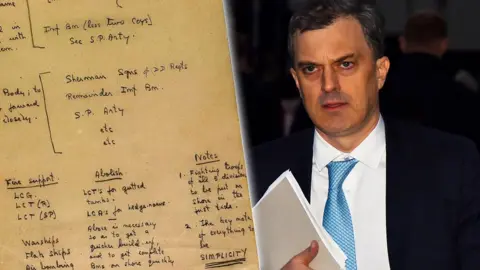 2 in
with
Inf Bn (less two Coys)
Sec S.P. Arty.
Body; to
closely.
Sherman Sqns of DD Regts
Remainder Inf Bn.
S.P. Arty
etc
etc
Fire support.
LCG.
LCT (R)
LCT (SP)
Warships
Flak ships
Air bombing
Abolish
LCT's for gutted
tanks.
LCA's for
Above is necessary
so as to get a
quicker build-up,
and to get complete
Bns on shore quickly
Notes
1. Fighting troops
of all
to be put on
shore in the
first tide.
2. The key note
of everything to
be
SIMPLICITY